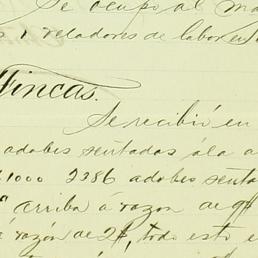 Se ocupo al
s y veladores de labor en
Fincas.
Se recibió en
adobes sentados á la
1000 2386 adobes senta
arriba á razon de 9$
á razón de 2$, todo esto e